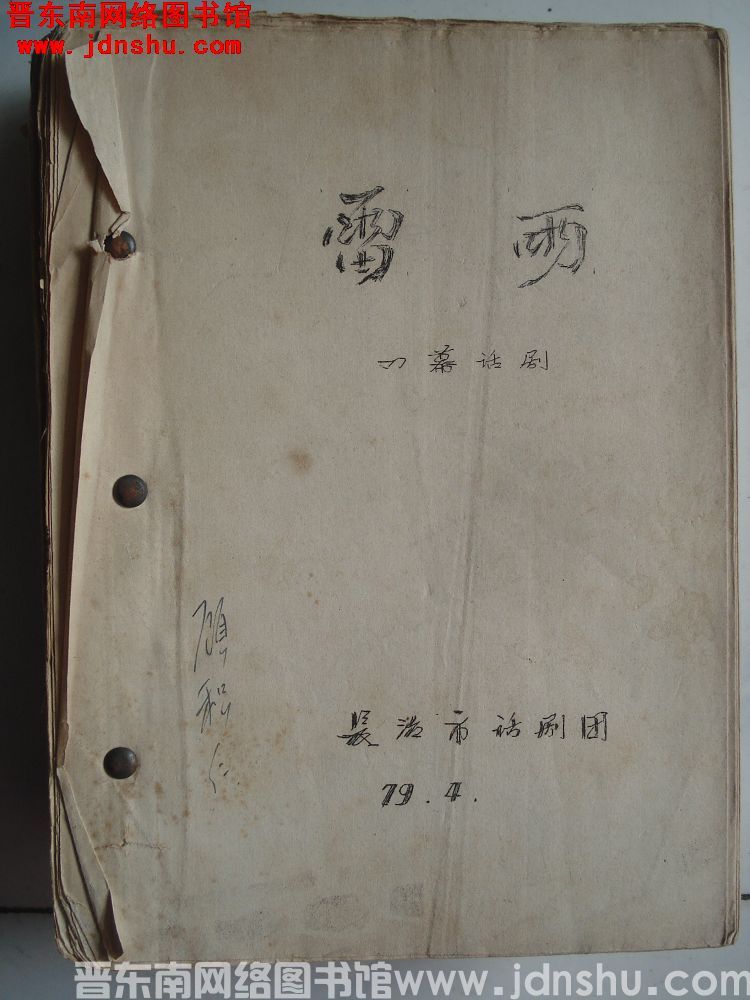 晋东南网络图书馆
www.jdnshu.com
雷雨
四幕话剧
顾
长治市话剧团
79.4.
晋东南网络图书馆www.jdnshu.com